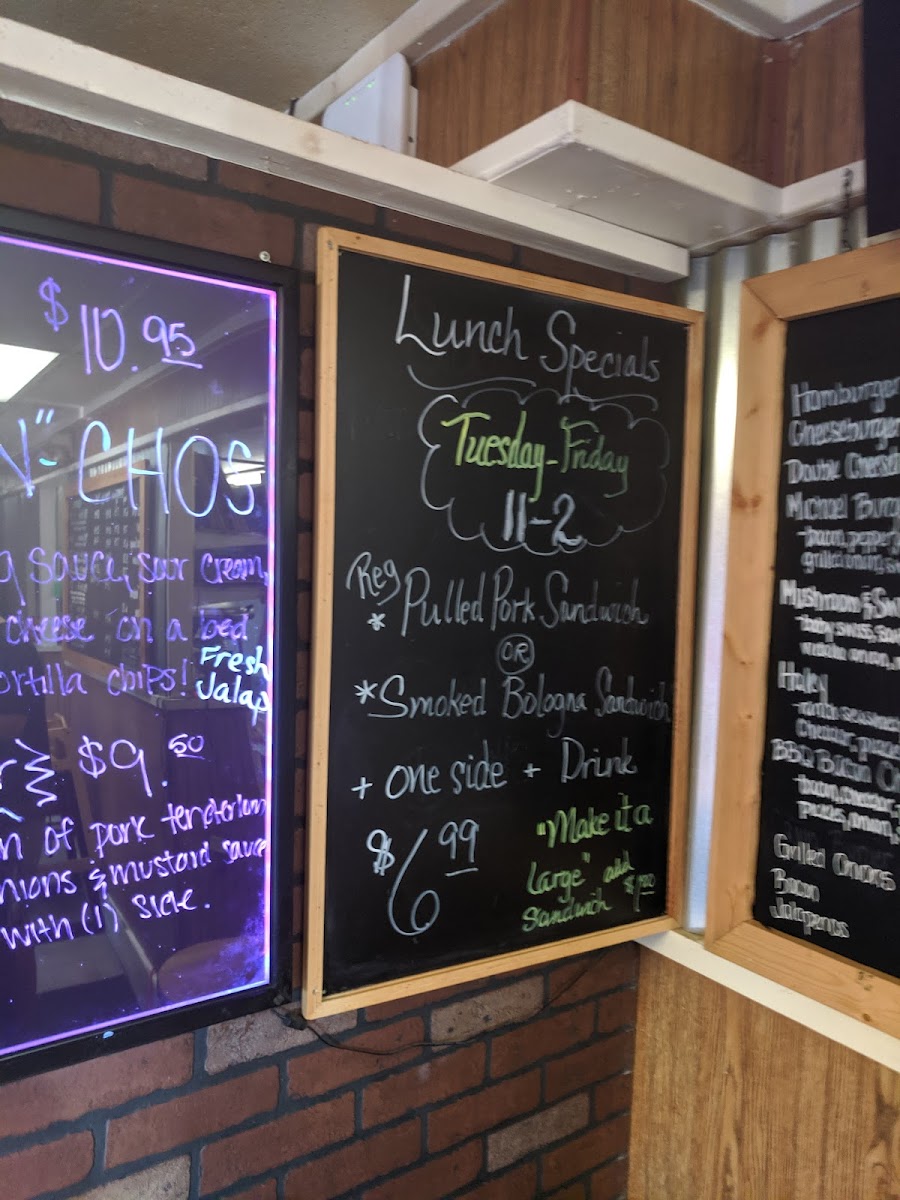 $10.95
"-CHOS
sauce, sour cream,
cheese on a bed
tortilla chips! Fresh
Jalap
$9.50
of pork tenderloin
onions & mustard sauce
with (1) side.
Lunch Specials
Tuesday-Friday
11-2
Reg
* Pulled Pork Sandwich
OR
* Smoked Bologna Sandwich
+ one side + Drink
$6.99
"Make it a
large" add
Sandwich $1.00
Hamburger
Cheeseburger
Double Cheese
Michael Burg
-bacon, pepper
grilled onion,
Mushroom & Sw
-baby swiss,
onion,
Haley
-ranch
Cheddar,
BBQ Bacon
-bacon, cheddar,
pickles, onion,
Grilled Onions
Bacon
Jalapenos